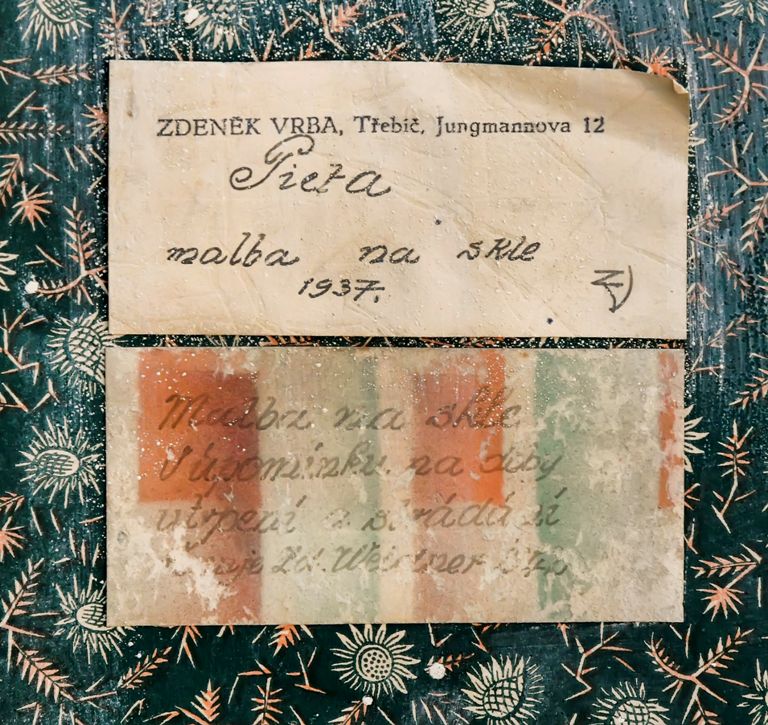 ZDENĚK VRBA, Třebíč, Jungmannova 12
Pieta
malba na skle
1937.
Malba na skle
V úpomínku na doby
utrpení a strádání
Zd.